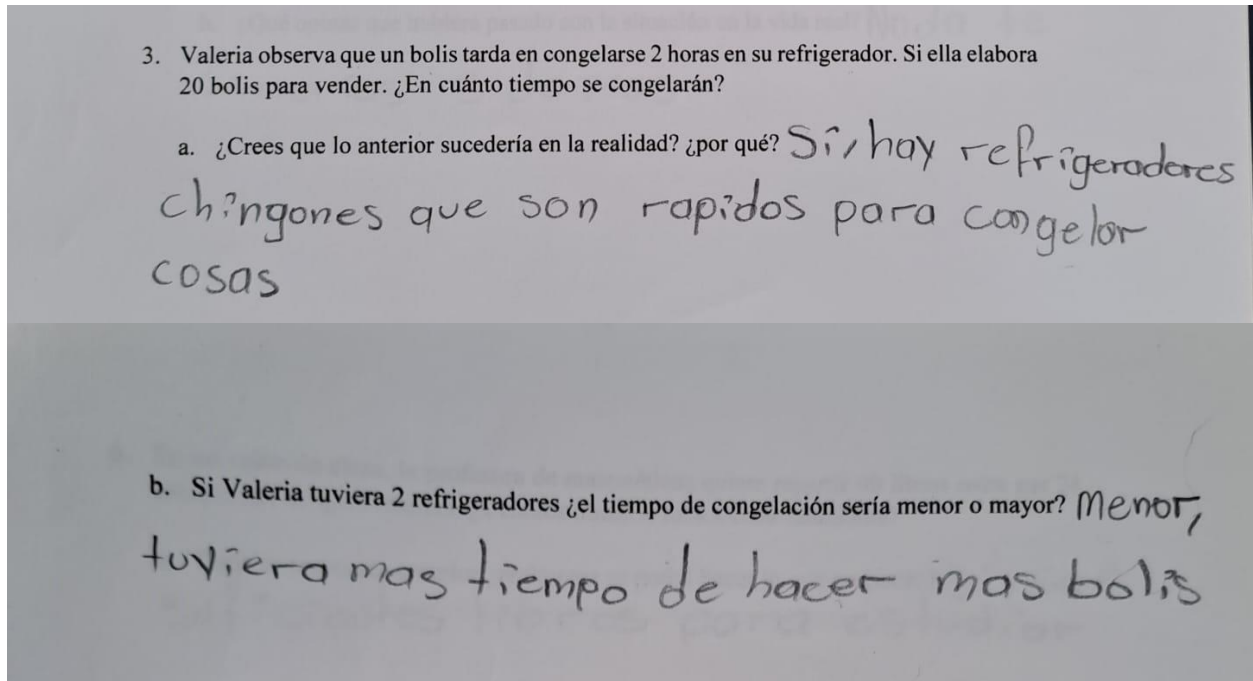 3. Valeria observa que un bolis tarda en congelarse 2 horas en su refrigerador. Si ella elabora
20 bolis para vender. ¿En cuánto tiempo se congelarán?
a. ¿Crees que lo anterior sucedería en la realidad? ¿por qué? Si, hay refrigeradores
chingones que son rapidos para congelar
cosas
b. Si Valeria tuviera 2 refrigeradores ¿el tiempo de congelación sería menor o mayor? Menor,
tuviera mas tiempo de hacer mas bolis